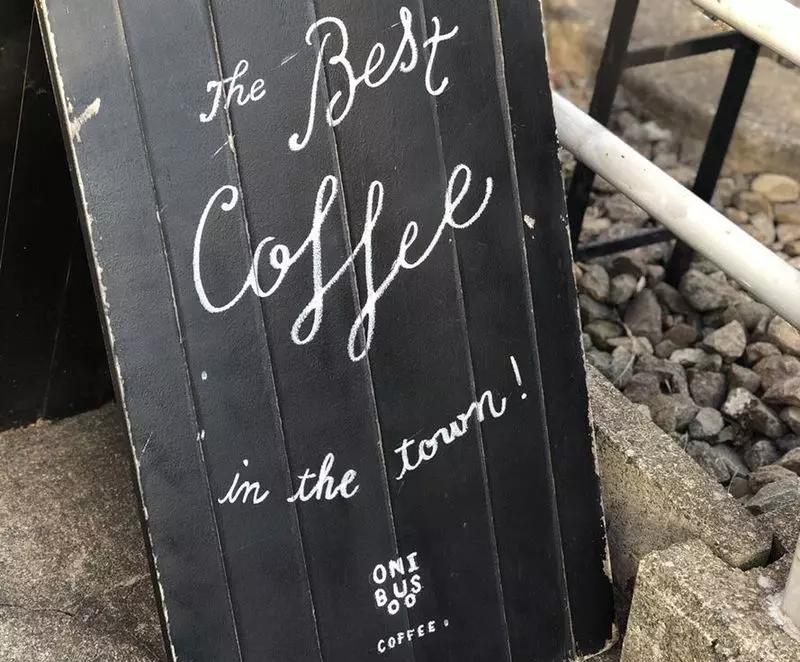 The Best
Coffee
in the town!
ONI
BUS
COFFEE.